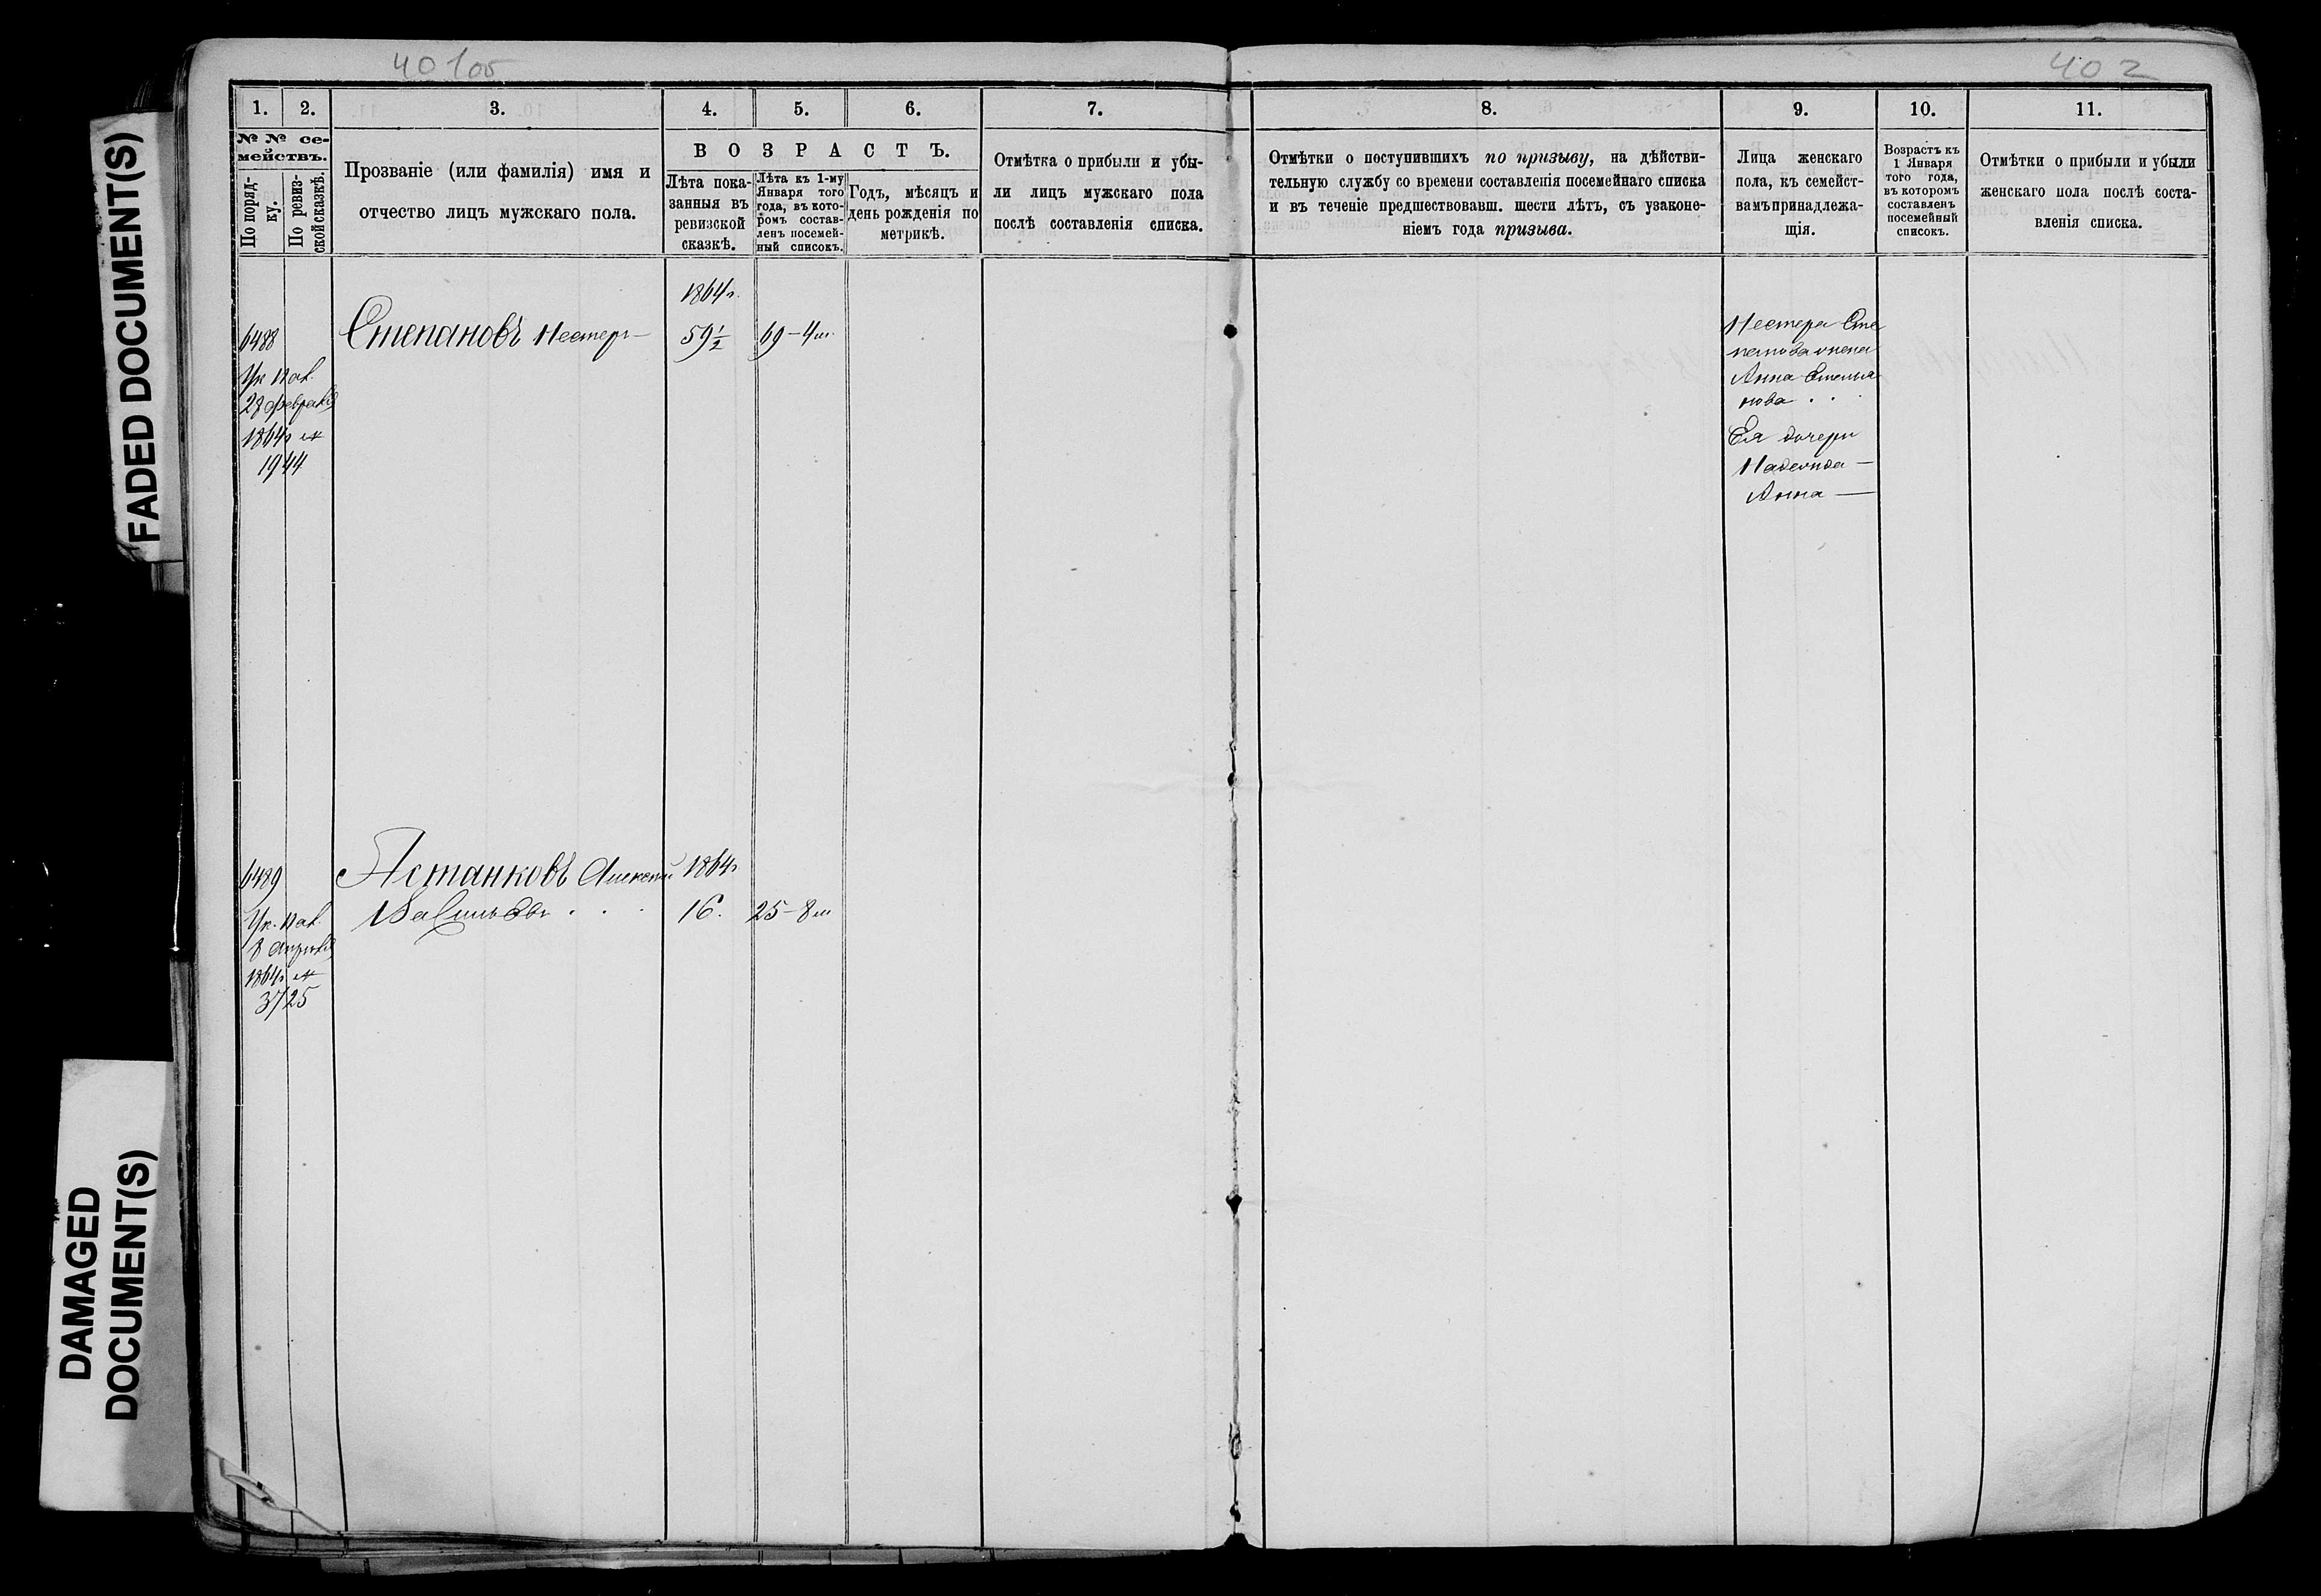 401об
402
FADED DOCUMENT(S)
DAMAGED
DOCUMENT(S)
1.
2.
3.
4.
5.
6.
7.
8.
9.
10.
11.
№ № се-
мействъ.
По поряд-
ку.
По ревиз-
ской сказкѣ.
Прозваніе (или фамилія) имя и
отчество лицъ мужскаго пола.
ВОЗРАСТЪ.
Лѣта пока-
занныя въ
ревизской
сказкѣ.
Лѣта къ 1-му
Января того
года, въ кото-
ромъ состав-
ленъ посемей-
ный списокъ.
Годъ, мѣсяцъ и
день рожденія по
метрикѣ.
Отмѣтка о прибыли и убы-
ли лицъ мужскаго пола
послѣ составленія списка.
Отмѣтки о поступившихъ по призыву, на дѣйстви-
тельную службу со времени составленія посемейнаго списка
и въ теченіе предшествовавш. шести лѣтъ, съ узаконе-
ніемъ года призыва.
Лица женскаго
пола, къ семейст-
вамъ принадлежа-
щія.
Возрастъ къ
1 Января
того года,
въ которомъ
составленъ
посемейный
списокъ.
Отмѣтки о прибыли и убыли
женскаго пола послѣ соста-
вленія списка.
1864г.
6488
Степановъ Нестеръ —
59 1/2
69 – 4 м.
Ук. Пал.
28 Февраля
1864г №
1944
Нестера Сте
панова жена
Анна Степа
нова . . .
Ея дочери
Надежда —
Анна —
6489
Астанковъ Алексѣй
1864г
Васильевъ . . .
16.
25 – 8 м
Ук. Пал.
8 Апрѣля
1864г №
3725